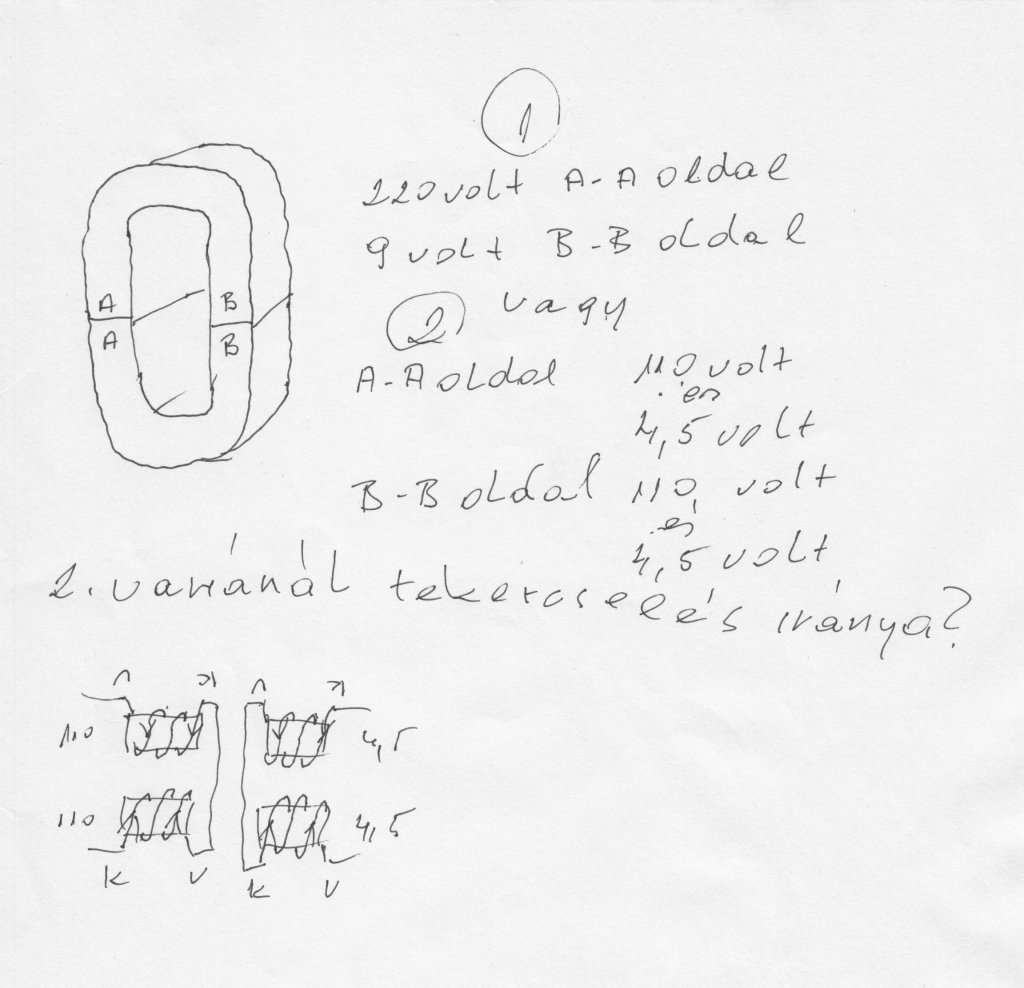 1
220 volt A-A oldal
9 volt B-B oldal
2 vagy
A-A oldal 110 volt
és
4,5 volt
B-B oldal 110 volt
és
4,5 volt
A B
A B
2. variánál tekercselés iránya?
110 4,5
110 4,5
K V K V